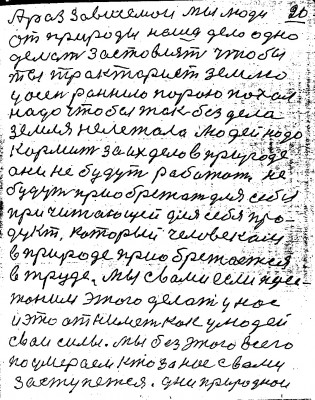 А раз зависемой мы люди 20
от природы наше дело одно
делат заставлят чтобы
ты тракторист землю
у осен раннию порою похал
надо чтобы так без дела
земля нележала людей надо
кормит за их дело в природе
они не будут работат не
будут приобретат для себя
причитающей для себя про-
дукт, который человекам
в природе приобретается
в труде. Мы с вами если
этого делат у нас
и это отнимет как у людей
сваи силы. Мы без этого всего
поумераем кто за нас с вами
заступется. дни природной